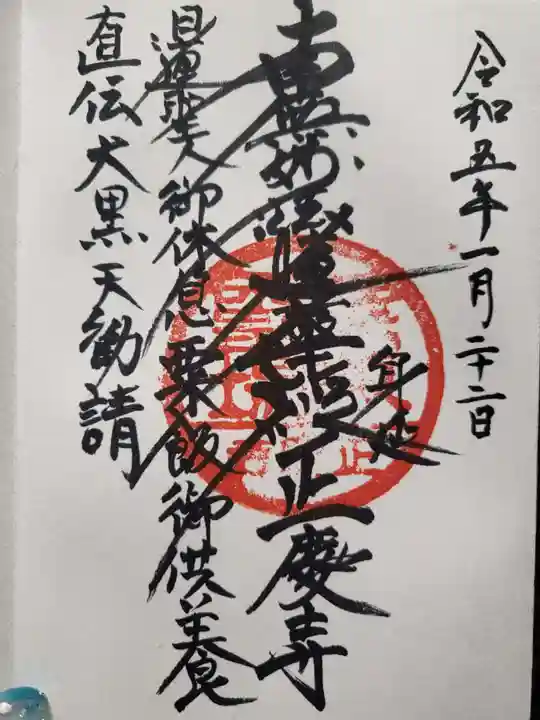 令和五年一月二十二日
南無妙法蓮華経 正慶寺
日蓮聖人御休息粟飯御供養
直伝大黒天勧請